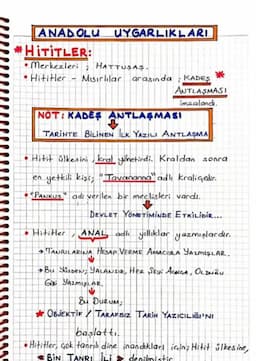 ANADOLU UYGARLIKLARI
* HİTİTLER:
• Merkezleri ; HATTUŞAŞ.
• Hititler - Mısırlılar arasında ; KADEŞ *
ANTLAŞMASI
imzalandı.
NOT: KADEŞ ANTLAŞMASI
TARİHTE BİLİNEN İLK YAZILI ANTLAŞMA
• Hitit ülkesini, kral yönetirdi. Kraldan sonra
en yetkili kişi; "Tavananna" adlı kraliçedir.
• "PANKUŞ" adı verilen bir meclisleri vardı.
DEVLET YÖNETİMİNDE ETKİLİDİR...
• Hititler, ANAL adlı yıllıklar yazmışlardır.
→ TANRILARINA HESAP VERME AMACIYLA YAZMIŞLAR.
→ BU YÜZDEN; YALANSIZ, HER ŞEYİ AYNISI, OLDUĞU
GİBİ YAZMIŞLAR.
BU DURUM;
* OBJEKTİF / TARAFSIZ TARİH YAZICILIĞI'NI
başlattı.
• Hititler, çok tanrılı dine inandıkları için; Hitit ülkesine,
BİN TANRI İLİ → denilmiştir.